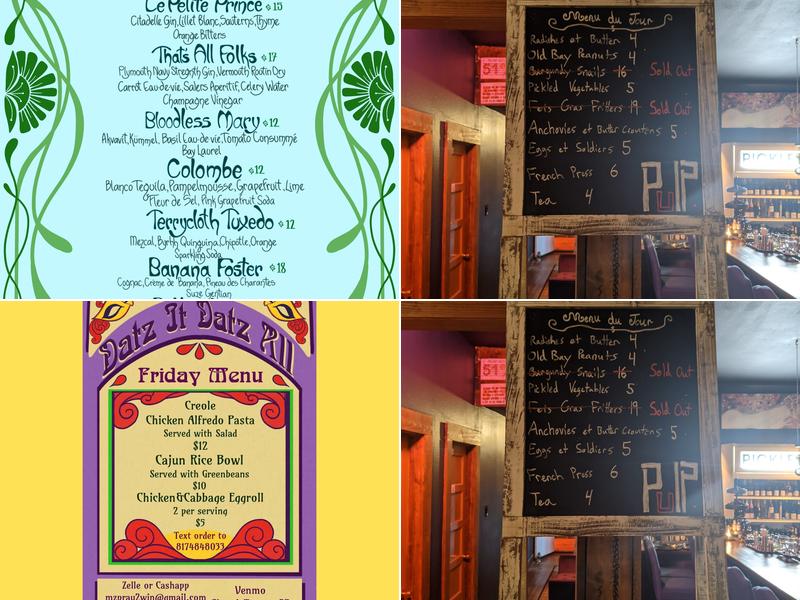 Le Petite Prince $15
Citadelle Gin, Lillet Blanc, Sauterns, Thyme
Orange Bitters
That's All Folks $17
Plymouth Navy Strength Gin, Vermouth Routin Dry
Carrot Eau de vie, Salers Aperitif, Celery Water
Champagne Vinegar
Bloodless Mary $12
Akvavit, Kummel, Basil Eau de vie, Tomato Consummé
Bay Laurel
Colombe $12
Blanco Tequila, Pampelmousse, Grapefruit, Lime
Fleur de Sel, Pink Grapefruit Soda
Terrycloth Tuxedo $12
Mezcal, Byrrh Quinquina, Chipotle, Orange
Sparkling Soda
Banana Foster $18
Cognac, Crème de Banana, Pineau des Charantes
Suze Gentian
Menu du Jour
Radishes et Butter 4
Old Bay Peanuts 4
Burgundy Snails 16 Sold Out
Pickled Vegetables 5
Fois Gras Fritters 19 Sold Out
Anchovies et Butter Croutons 5
Eggs et Soldiers 5
French Press 6
Tea 4
PulP
PICKLE
Datz It Datz All
Friday Menu
Creole
Chicken Alfredo Pasta
Served with Salad
$12
Cajun Rice Bowl
Served with Greenbeans
$10
Chicken&Cabbage Eggroll
2 per serving
$5
Text order to
8174848033
Zelle or Cashapp
mzpray2win@gmail.com
Venmo
Menu du Jour
Radishes et Butter 4
Old Bay Peanuts 4
Burgundy Snails 16 Sold Out
Pickled Vegetables 5
Fois Gras Fritters 19 Sold Out
Anchovies et Butter Croutons 5
Eggs et Soldiers 5
French Press 6
Tea 4
PulP
PICKLE